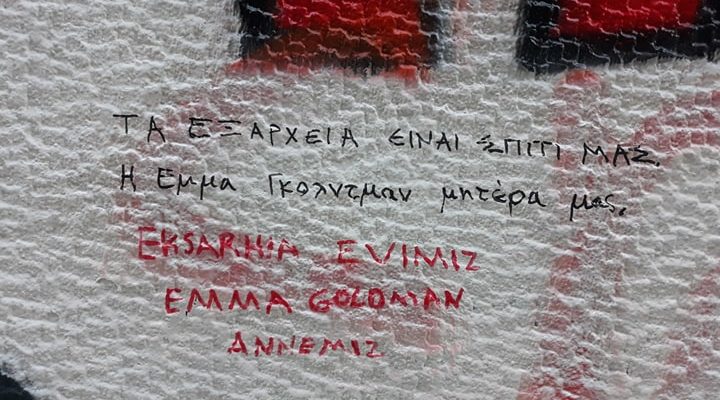 ΤΑ ΕΞΑΡΧΕΙΑ ΕΙΝΑΙ ΣΠΙΤΙ ΜΑΣ.
Η Εμμα Γκολντμαν μητέρα μας.
EKSARHIA EVIMIZ
EMMA GOLDMAN
ANNEMIZ